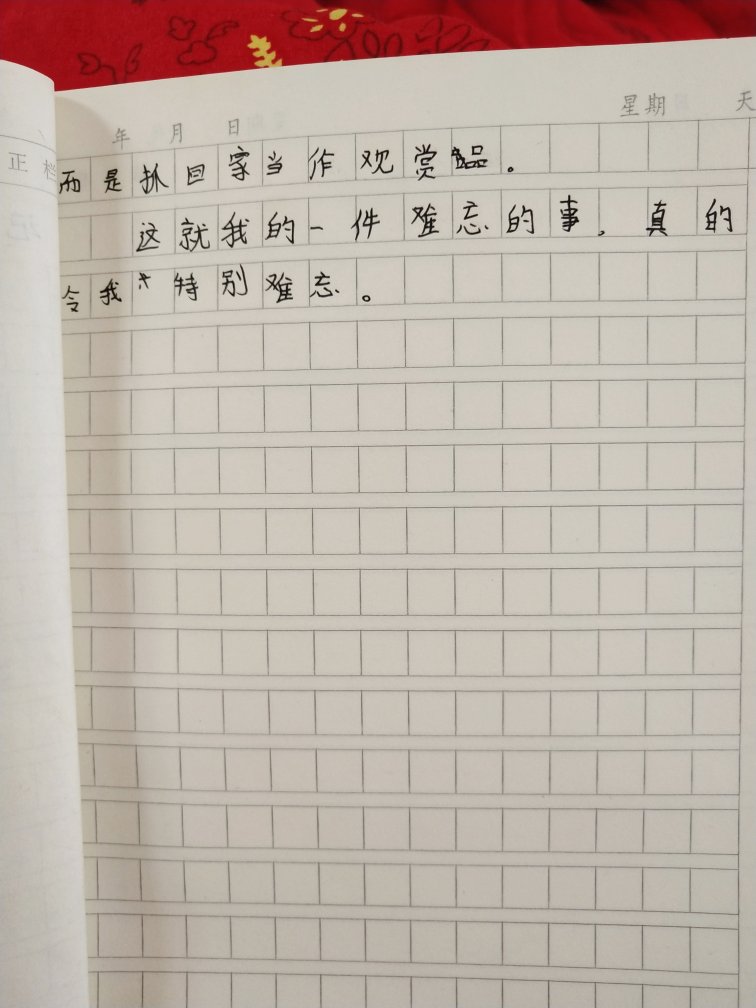 年 月 日 星期 天
正 档
而是抓回家当作观赏品。
这就我的一件难忘的事，真的
令我特别难忘。